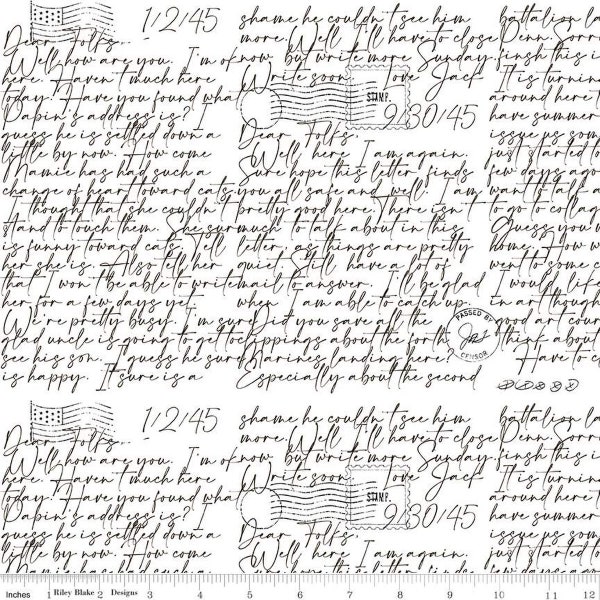 1/2/45
Dear Folks,..
Well, how are you. I'm ok
here. Haven't much here
today. Have you found wha
Papin's address is? I
guess he is settled down a
little by now. How come
Mamie has had such a
change of heart toward cats.
I thought that she couldn't
stand to touch them. She sur
is funny toward cats. Tell
her she is. Also tell her
that I won't be able to write
her for a few days yet.
We're pretty busy. I'm sur
glad uncle is going to get to
see his son. I guess he sure
is happy. It sure is a
shame he couldn't see him
more. Well I'll have to close
now but write more Sunday.
Write soon, Love Jack
STAMP.
9/30/45
Dear Folks:
Well, here I am again.
Sure hope this letter finds
you all safe and well. I am
pretty good here. There isn't
much to talk about in this
letter, as things are pretty
quiet. Still have a lot of
mail to answer. I'll be glad
when I am able to catch up.
Did you save all the
clippings about the forth
Marines landing here?
Especially about the second
PASSED BY
CENSOR
battalion la
Penn. Sorr
finsh this i
It is turnin
around here t
have summer
issue us som
just started to
few days ago
want to talk a
to go to collag
Guess you w
home. How w
went to some c
I would life
in art though
good art cour
think about
Have to c
1/2/45
Dear Folks,..
Well, how are you. I'm ok
here. Haven't much here
today. Have you found wha
Papin's address is? I
guess he is settled down a
little by now. How come
Mamie has had such a
shame he couldn't see him
more. Well I'll have to close
now but write more Sunday.
Write soon, Love Jack
STAMP.
9/30/45
Dear Folks:
Well, here I am again.
Sure hope this letter finds
battalion la
Penn. Sorr
finsh this i
It is turnin
around here t
have summer
issue us som
just started to
few days ago
Inches 1 Riley Blake 2 Designs 3 4 5 6 7 8 9 10 11 12